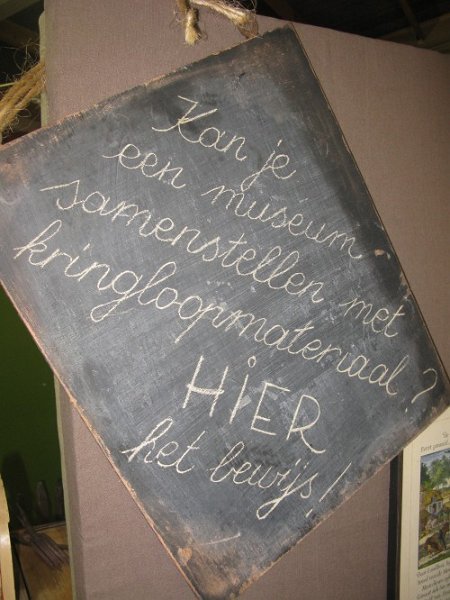 Kan je
een museum
samenstellen met
kringloopmateriaal?
HiER
het bewijs!